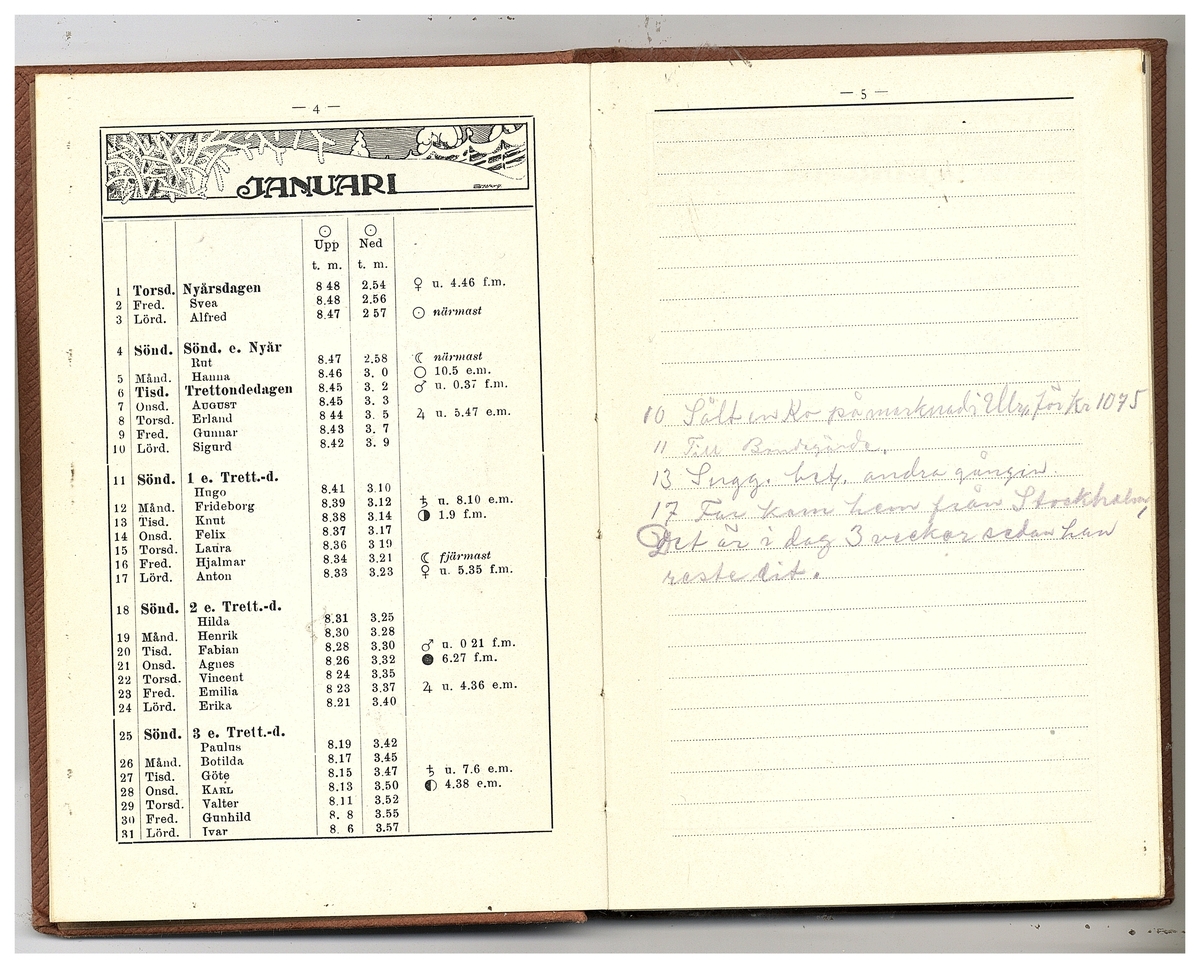 — 4 —
JANUARI
☉ ☉
Upp Ned
t. m. t. m.
1 Torsd. Nyårsdagen 8 48 2.54 ♀ u. 4.46 f.m.
2 Fred. Svea 8.48 2.56
3 Lörd. Alfred 8.47 2 57 ☉ närmast
4 Sönd. Sönd. e. Nyår
Rut 8.47 2.58 ☾ närmast
5 Månd. Hanna 8.46 3. 0 ○ 10.5 e.m.
6 Tisd. Trettondedagen 8.45 3. 2 ♂ u. 0.37 f.m.
7 Onsd. AUGUST 8.45 3. 3
8 Torsd. Erland 8 44 3. 5 ♃ u. 5.47 e.m.
9 Fred. Gunnar 8.43 3. 7
10 Lörd. Sigurd 8.42 3. 9
11 Sönd. 1 e. Trett.-d.
Hugo 8.41 3.10
12 Månd. Frideborg 8.39 3.12 ♄ u. 8.10 e.m.
13 Tisd. Knut 8.38 3.14 ◑ 1.9 f.m.
14 Onsd. Felix 8.37 3.17
15 Torsd. Laura 8.36 3 19
16 Fred. Hjalmar 8.34 3.21 ☾ fjärmast
17 Lörd. Anton 8.33 3.23 ♀ u. 5.35 f.m.
18 Sönd. 2 e. Trett.-d.
Hilda 8.31 3.25
19 Månd. Henrik 8.30 3.28
20 Tisd. Fabian 8.28 3.30 ♂ u. 0 21 f.m.
21 Onsd. Agnes 8 26 3.32 ● 6.27 f.m.
22 Torsd. Vincent 8 24 3.35
23 Fred. Emilia 8 23 3.37 ♃ u. 4.36 e.m.
24 Lörd. Erika 8.21 3.40
25 Sönd. 3 e. Trett.-d.
Paulus 8.19 3.42
26 Månd. Botilda 8.17 3.45
27 Tisd. Göte 8.15 3.47 ♄ u. 7.6 e.m.
28 Onsd. KARL 8.13 3.50 ◐ 4.38 e.m.
29 Torsd. Valter 8.11 3.52
30 Fred. Gunhild 8. 8 3.55
31 Lörd. Ivar 8. 6 3.57
— 5 —
10 Sålt en Ko på marknad i för Kr 1075
11 Till
13 Sugg. bet. andra gången.
17 Far kom hem från Stockholm,
Det är i dag 3 veckor sedan han
reste dit.